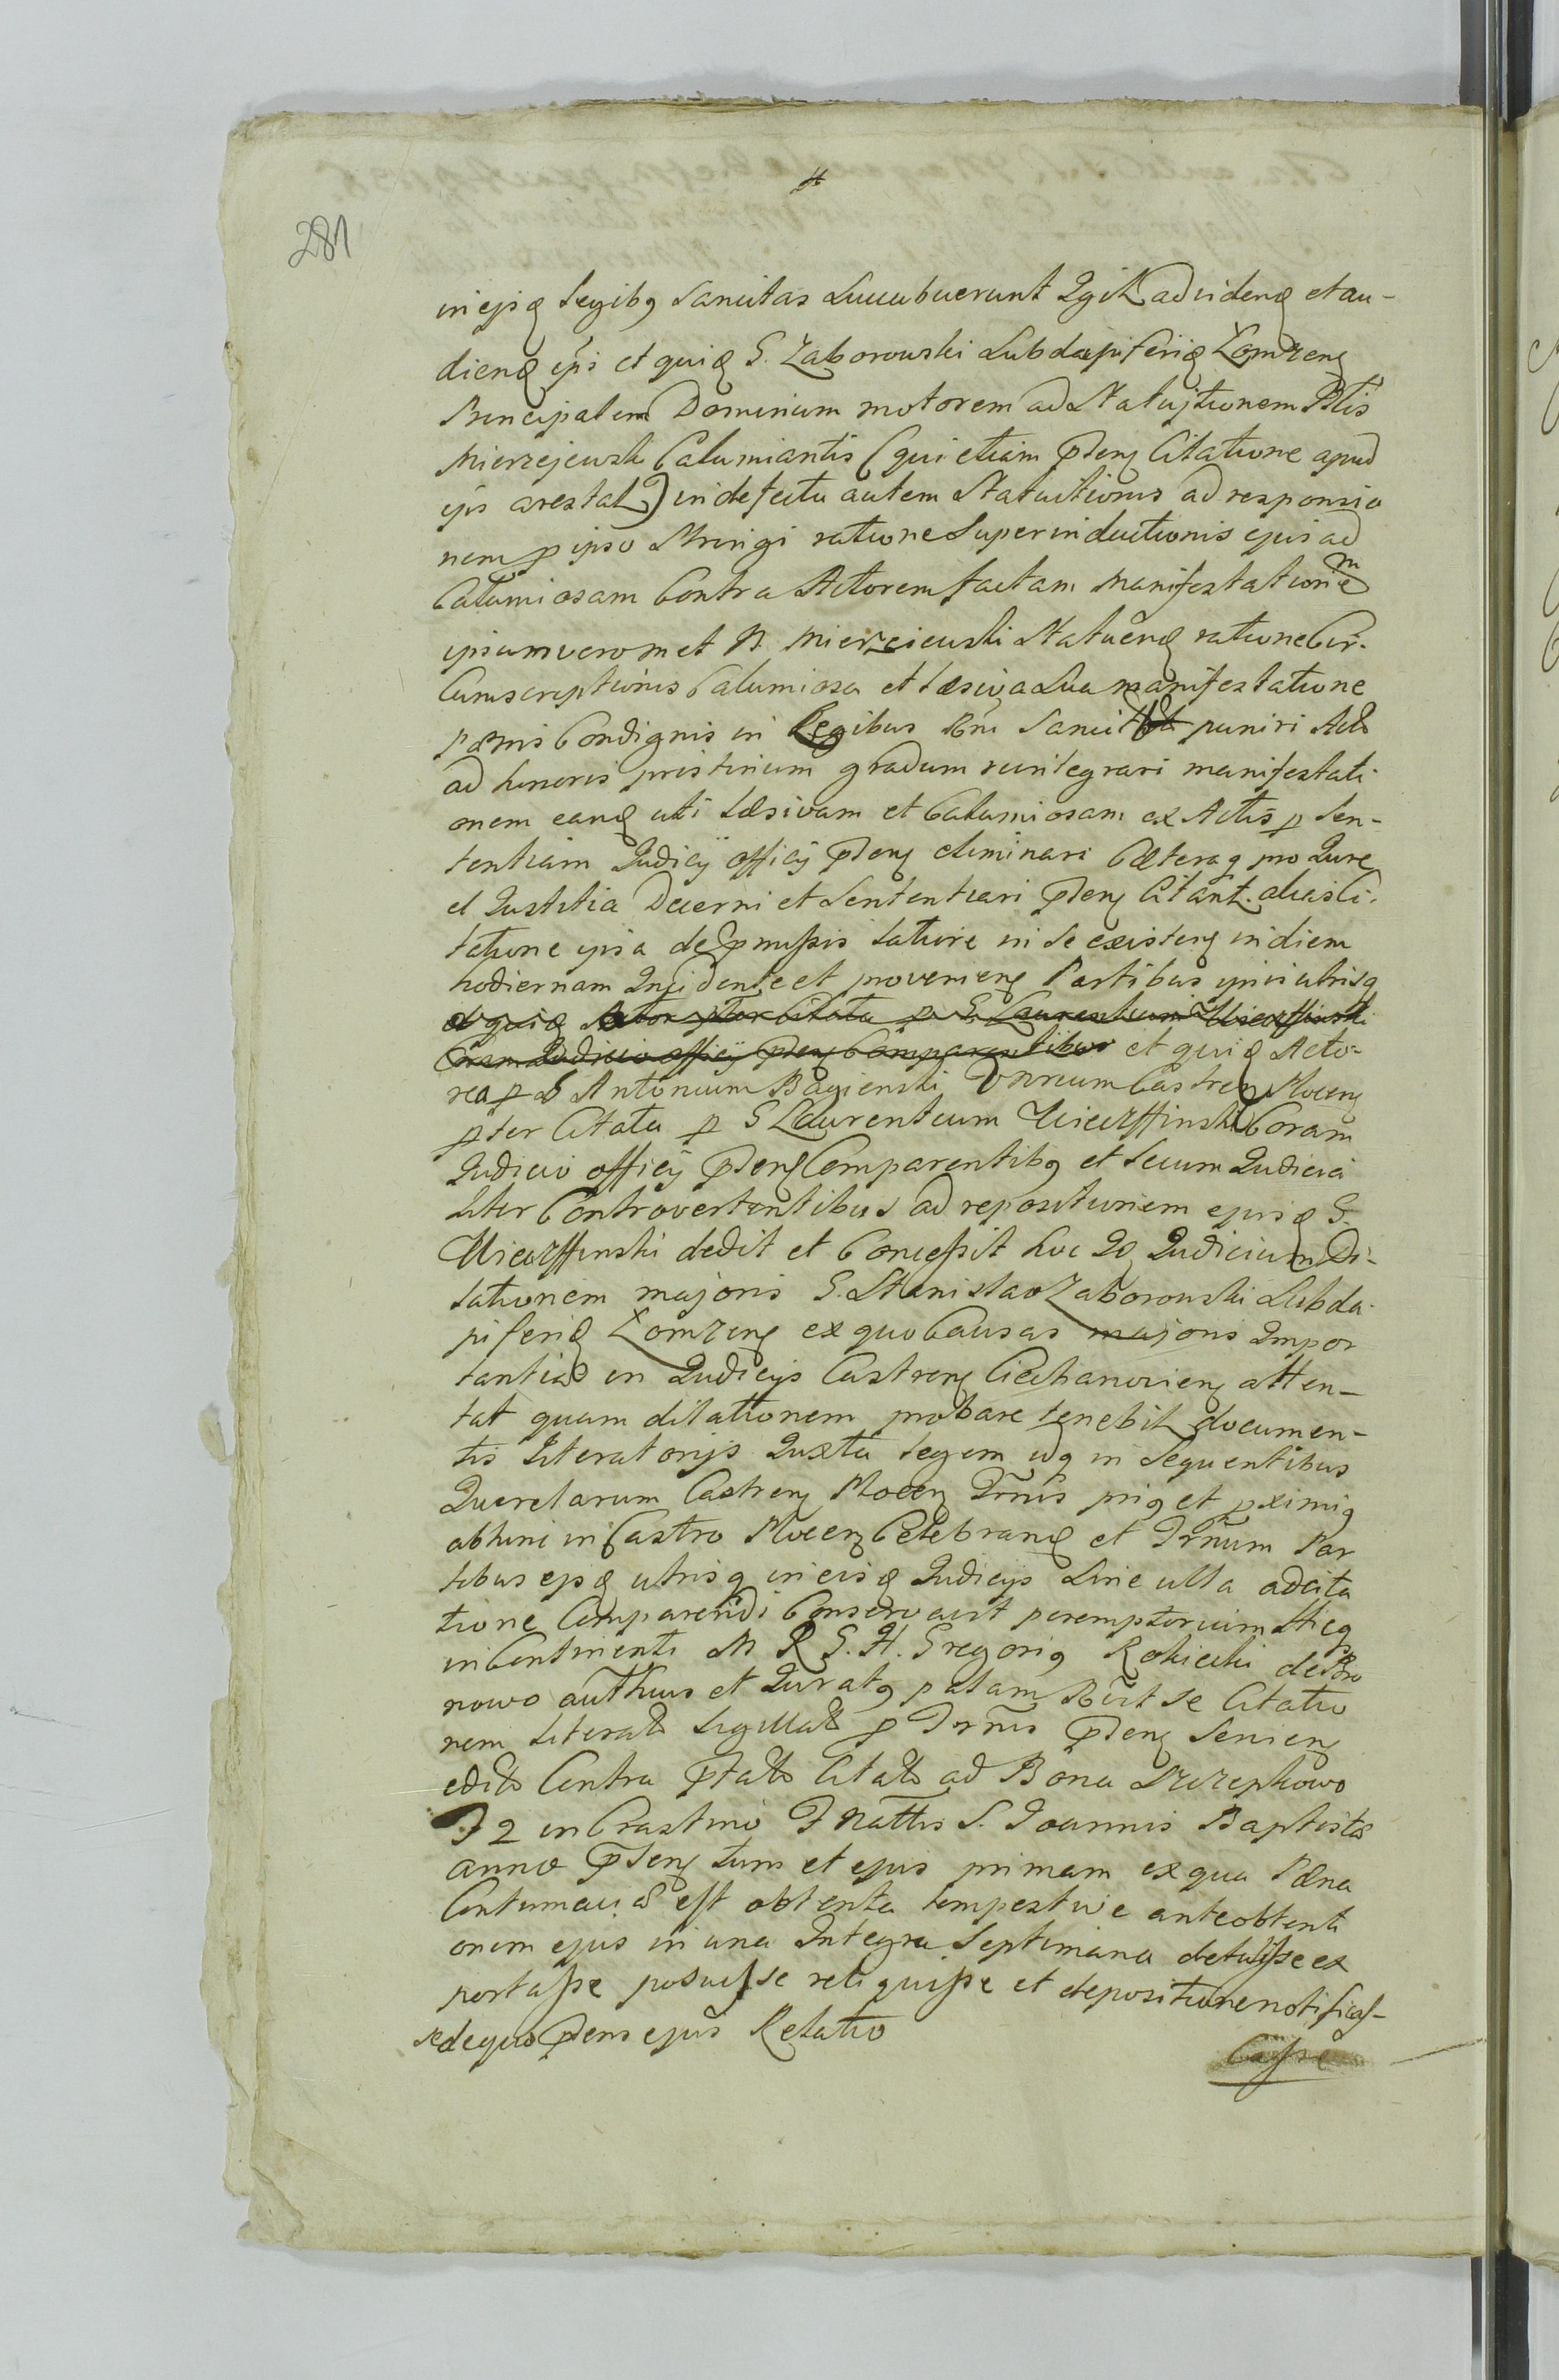 281
in ejsq Legibq Sancitas Succubuerunt Igitr ad videnq et au-
dienq ipi et quiq G. Zaborowski Subdapiferiq Łomzenq
Principalem Dominum motorem ad Statujtionem Nbilis
Mierzejewski Calumiantis (qui etiam pntenq Citatione apud
ips arestatr) in defectu autem Statuitionis ad responsio
nem p ipso Stringi ratione Superinductionis ejus ad
Calumiosam Contra Actorem factam Manifestatione m
ipsum vero met N. Mierzieiewski Statuenq ratione Cir-
Cumscriptionis Calumiosa et Læsiva Sua manifestatione
pænis Condignis in Legibus Rni Sancit puniri Acto
ad honoris pristinum gradum reintegrari manifestati
onem eanq uti Læsivam et Calumiosam ex Actis p Sen-
tentiam Judicij officij pntenq eliminari Cæteraq pro Jure
et Justitia Decerni et Sententiari pntenq Citant. aliasci-
tatione ipsa de præmissis latiore in se existenq in diem
hodiernam Incidente et provenienq Partibus ipsi utrisq
et quiq Actor pter Citata p G Laurentium Uieczffinski
Coram Judicio officij pntenq Comparentibus et quiq Acto-
rea p G Antonium Bagienski Vnrium Castrenq Plocenq
pter Citata p G Laurentium Uieczffinski Coram
Judicio officij pntenq Comparentibq et Secum Judicia
liter Controvertentibus ad repositionem ejusq G.
Uieczffinski dedit et Concessit hoc Jq Judicium Di-
lationem majoris G. Stanislao Zaborowski Subda-
piferiq Łomzenq ex quo Causas majoris Impor
tantiæ in Judicijs Castrenq Ciechanovienq atten-
tat quam dilationem probare tenebitr documen-
tis Literatorijs Juxta legem idq in Sequentibus
Querelarum Castrenq Plocenq Trmis priq et pximiq
abhinc in Castro Plocenq Celebranq et Trnum Par
tibus epsq utrisq in eisq Judicijs Sine ulla adcita
tione Comparendi Conservavit peremptorium Hicq
in Continenti M R G. H. Gregoriq Rokicki de Bro
nowo authicus et Juratq palam Rcit se Citatio
nem Literato Sigillato p Trmis pntenq Senienq
edito Contra pntato Citato ad Bona Szczepkowo
F 2 in Crastino F Nattis S. Joannis Baptistæ
anno pntenq tum et ejus primam ex qua Pæna
Contumaciæ est obtenta tempestive ante obtenti
onem ejus in una Integra Septimana detulisse ex
portasse posuisse reliquisse et depositione notificas-
se de quo pntens ejus Relatio
Casse